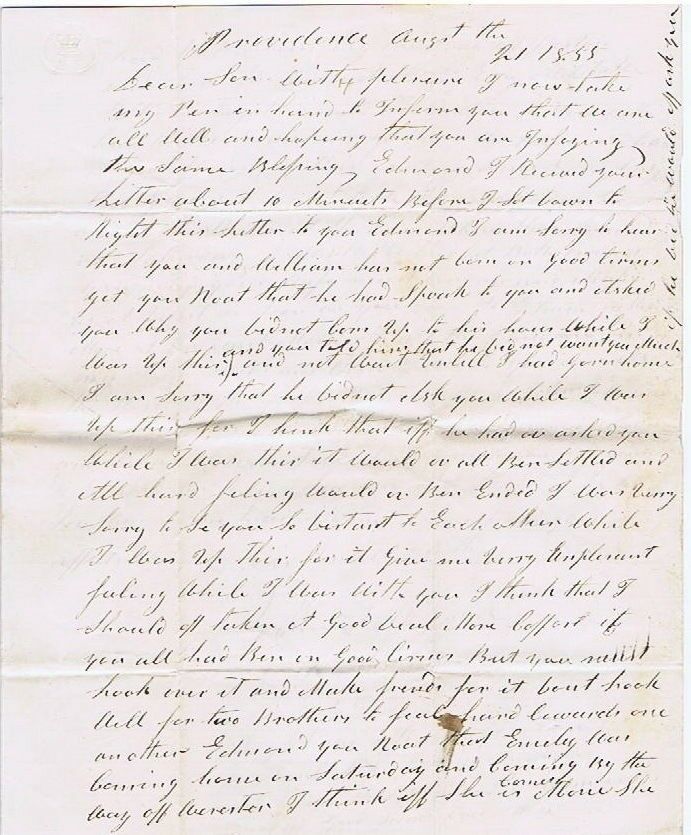 Providence Augst the
21 1855
Dear Son With pleasure I now take
my Pen in hand to Inform you that We are
all Well and hopeing that you are Injoying
the Same Blessing Edmond I Receved your
Letter about 10 Menuets Before I Set down to
Right this Letter to you Edmond I am Sorry to hear
that you and William has not ben on Good tirms
yet you Roat that he had Spoak to you and Asked
you Why you didnot Com Up to his hous While I
and you told him that he did not want you Much
Was Up thir and not Wait untill I had gorn home
I am Sorry that he didnot Ask you While I Was
Up thir for I think that iff he had ov asked you
While I Was thir it Would ov all Ben Settled and
All hard feling Would ov Ben Ended I Was Verry
Sorry to Se you So distant to Each other While
I Was Up thir for it Give me Verry Unplesant
feling While I Was With you I think that I
Should off taken A Good deal More Comfort if
you all had Ben on Good tirms But you must
look over it and Make frends for it dont look
Well for two Brothers to feal hard towards one
another Edmond you Roat that Emely Was
Coming home on Saturday and Coming By the
Way off Worester I think iff She Comes More She
if he did he would off ask you